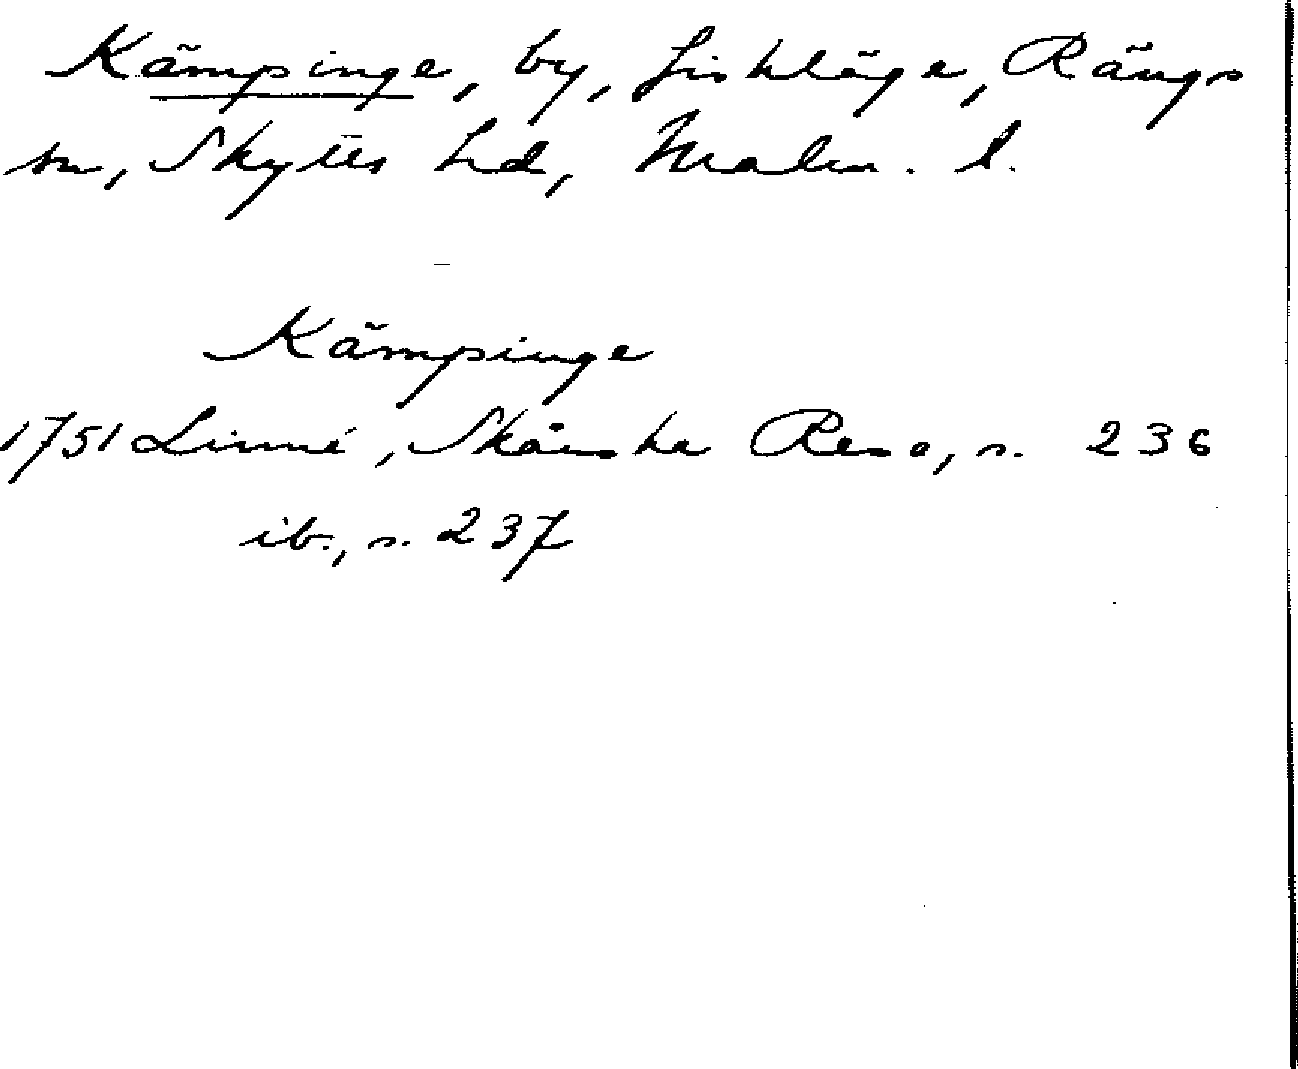 Kämpinge, by, fiskläge, Rängs
sn, Skytts hd, Malm. l.
Kämpinge
1751 Linné, Skånska Resa, s. 236
ib., s. 237